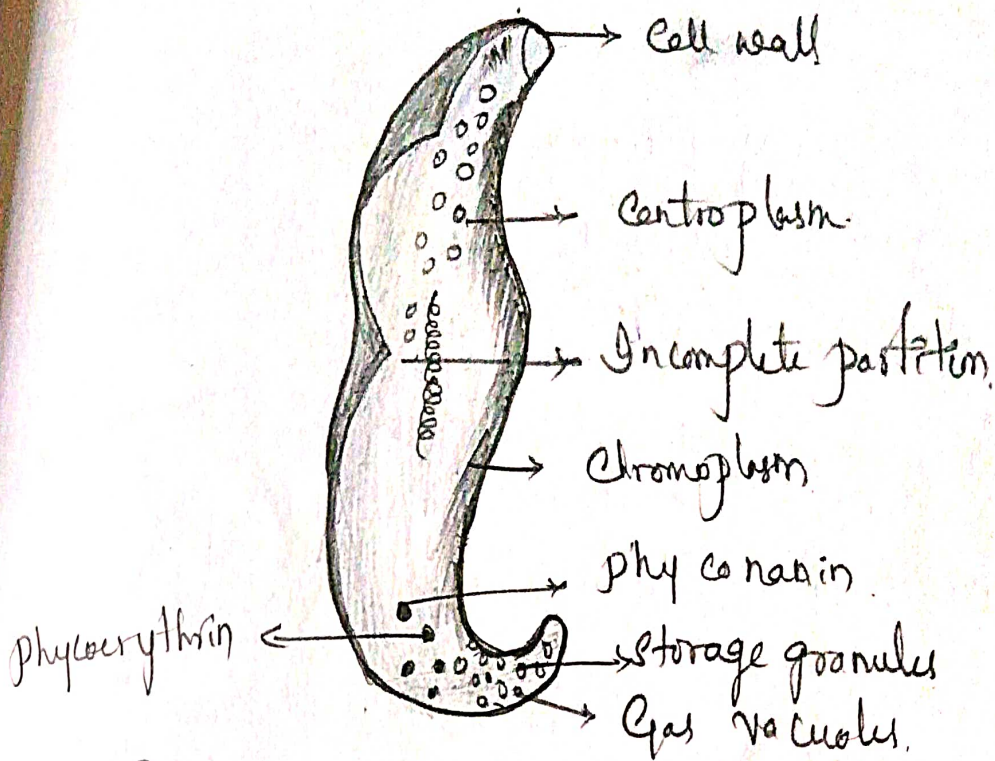 Cell wall
Centroplasm.
Incomplete partition.
Chromoplasm
phyconanin
phycoerythrin
storage granules
Gas vacuoles.